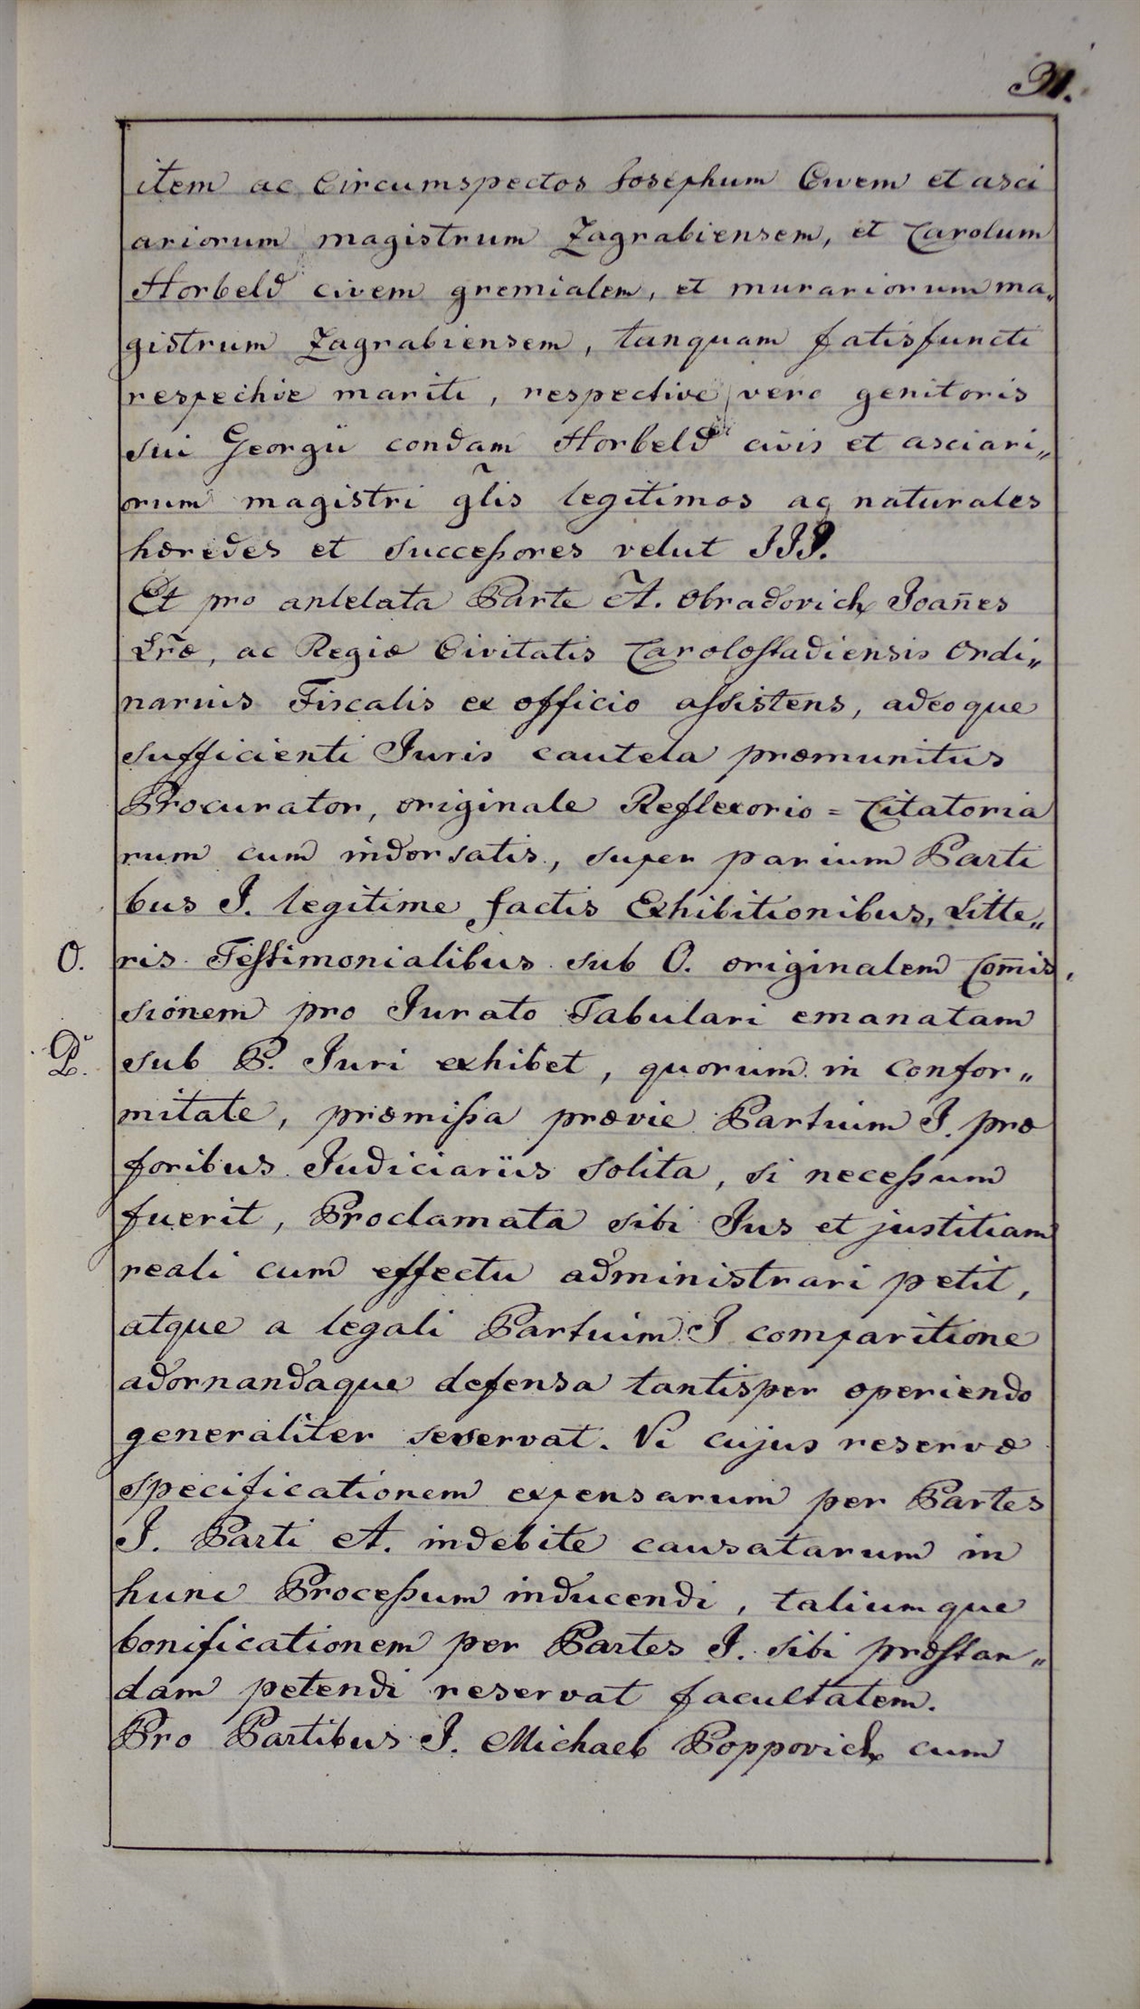 31.
item ac Circumspectos Josephum Civem et asci
ariorum magistrum Zagrabiensem, et Carolum
Horbeld civem gremialem, et murariorum ma„
gistrum Zagrabiensem, tanquam fatisfuncti
respective mariti, respective vero genitoris
sui Georgii condam Horbeld civis et asciari„
orum magistri gl̃is legitimos ac naturales
hæredes et successores velut III.
Et pro antelata Parte A. Obradovich Joan̄es
Lr̃æ, ac Regiæ Civitatis Carolostadiensis Ordi„
narius Fiscalis ex officio assistens, adeoque
sufficienti Juris cautela præmunitus
Procurator, originale Reflexorio = Citatoria
rum cum indorsatis, super parium Parti
bus I. legitime factis Exhibitionibus, Litte„
O. ris Testimonialibus sub O. originalem Com̄is„
sionem pro Jurato Tabulari emanatam
P. sub P. Juri exhibet, quorum in confor„
mitate, præmissa prævie Partium I. præ
foribus Judiciariis solita, si necessum
fuerit, Proclamata sibi Jus et justitiam
reali cum effectu administrari petit,
atque a legali Partium I comparitione
adornandaque defensa tantisper operiendo
generaliter seservat. Vi cujus reservæ
specificationem expensarum per Partes
I. Parti A. indebite causatarum in
hunc Processum inducendi, taliumque
bonificationem per Partes I. sibi præstan„
dam petendi reservat facultatem.
Pro Partibus I. Michael Poppovich cum